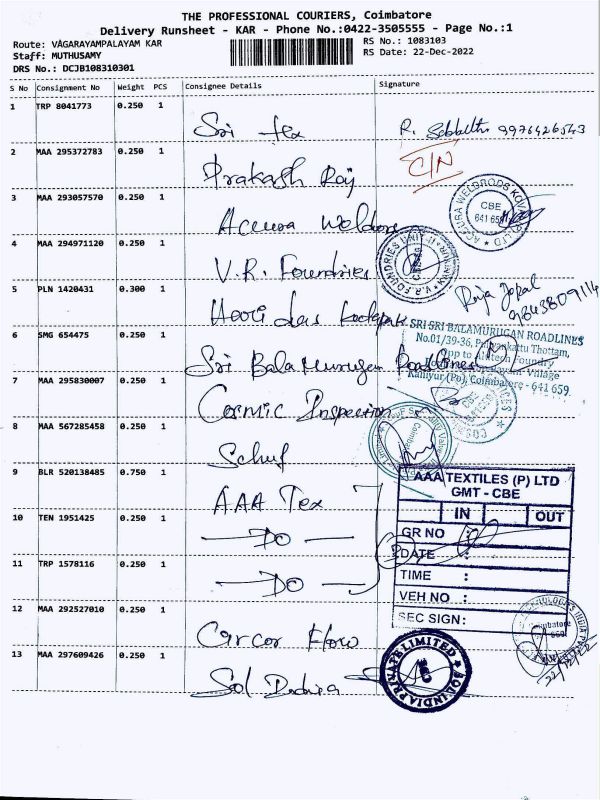 THE PROFESSIONAL COURIERS, Coimbatore
Delivery Runsheet - KAR - Phone No.:0422-3505555 - Page No.:1
Route: VAGARAYAMPALAYAM KAR
RS No.: 1083103
Staff: MUTHUSAMY
RS Date: 22-Dec-2022
DRS No.: DCJB108310301
S No Consignment No Weight PCS Consignee Details Signature
1 TRP 8041773 0.250 1
Sri Tex R. 9976426543
2 MAA 295372783 0.250 1
C/N
Prakash Raj
3 MAA 293057570 0.250 1
Accura Weldrods
ACCURA WELDRODS KOVAI LTD
CBE
641 659
4 MAA 294971120 0.250 1
V.R. Foundries
V.R. FOUNDRIES UNIT-II
5 PLN 1420431 0.300 1
Raja Gopal
9843809114
Hari das
6 SMG 654475 0.250 1
SRI SRI BALAMURUGAN ROADLINES
No.01/39-36, Thottam,
Opp to Foundry
Village
Kaniyur (Po), Coimbatore - 641 659
Sri Bala Murugan Roadlines
7 MAA 295830007 0.250 1
Cosmic Inspection
8 MAA 567285458 0.250 1
Schuf
9 BLR 520138485 0.750 1
AAA Tex
AAA TEXTILES (P) LTD
GMT - CBE
IN OUT
10 TEN 1951425 0.250 1
— DO —
GR NO
DATE :
11 TRP 1578116 0.250 1
— DO —
TIME :
VEH NO :
SEC SIGN:
12 MAA 292527010 0.250 1
Circor Flow
Coimbatore
22/12/22
13 MAA 297609426 0.250 1
Sol India
SOL INDIA PRIVATE LIMITED